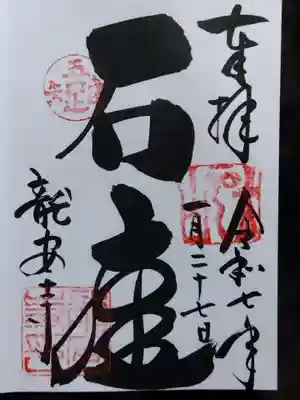 奉拝
令和七年
一月二十七日
石庭
龍安寺